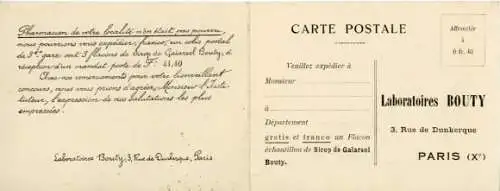 Pharmacien de votre localité n'en était pas pourvu
nous pourrions vous expédier, franco, un colis postal
de 3 kgs gare ont 3 flacons de Sirop de Galarsol Bouty, à
réception d'un mandat poste de Fr 41,40
Avec nos remerciements pour votre bienveillant
concours, nous vous prions d'agréer, Monsieur l'Insti-
tuteur, l'expression de nos salutations les plus
empressées.
Laboratoires Bouty, 3, Rue de Dunkerque, Paris
CARTE POSTALE
Veuillez expédier à
Monsieur
à
Département
gratis et franco un Flacon
échantillon de Sirop de Galarsol
Bouty.
Affranchir
à
0 fr. 40
Laboratoires BOUTY
3, Rue de Dunkerque
PARIS (Xe)